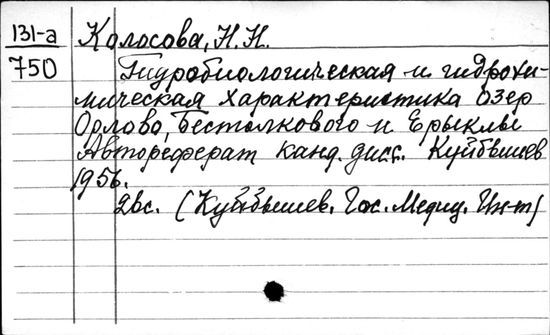 131-а Колосова, Н.Н.
750 Гидробиологическая и гидрохи-
мическая характеристика озер
Орлово, Бестолкового и Ерыклы
Автореферат канд. дисс. Куйбышев
1956.
2вс. (Куйбышев. Гос. Медиц. Ин-т)